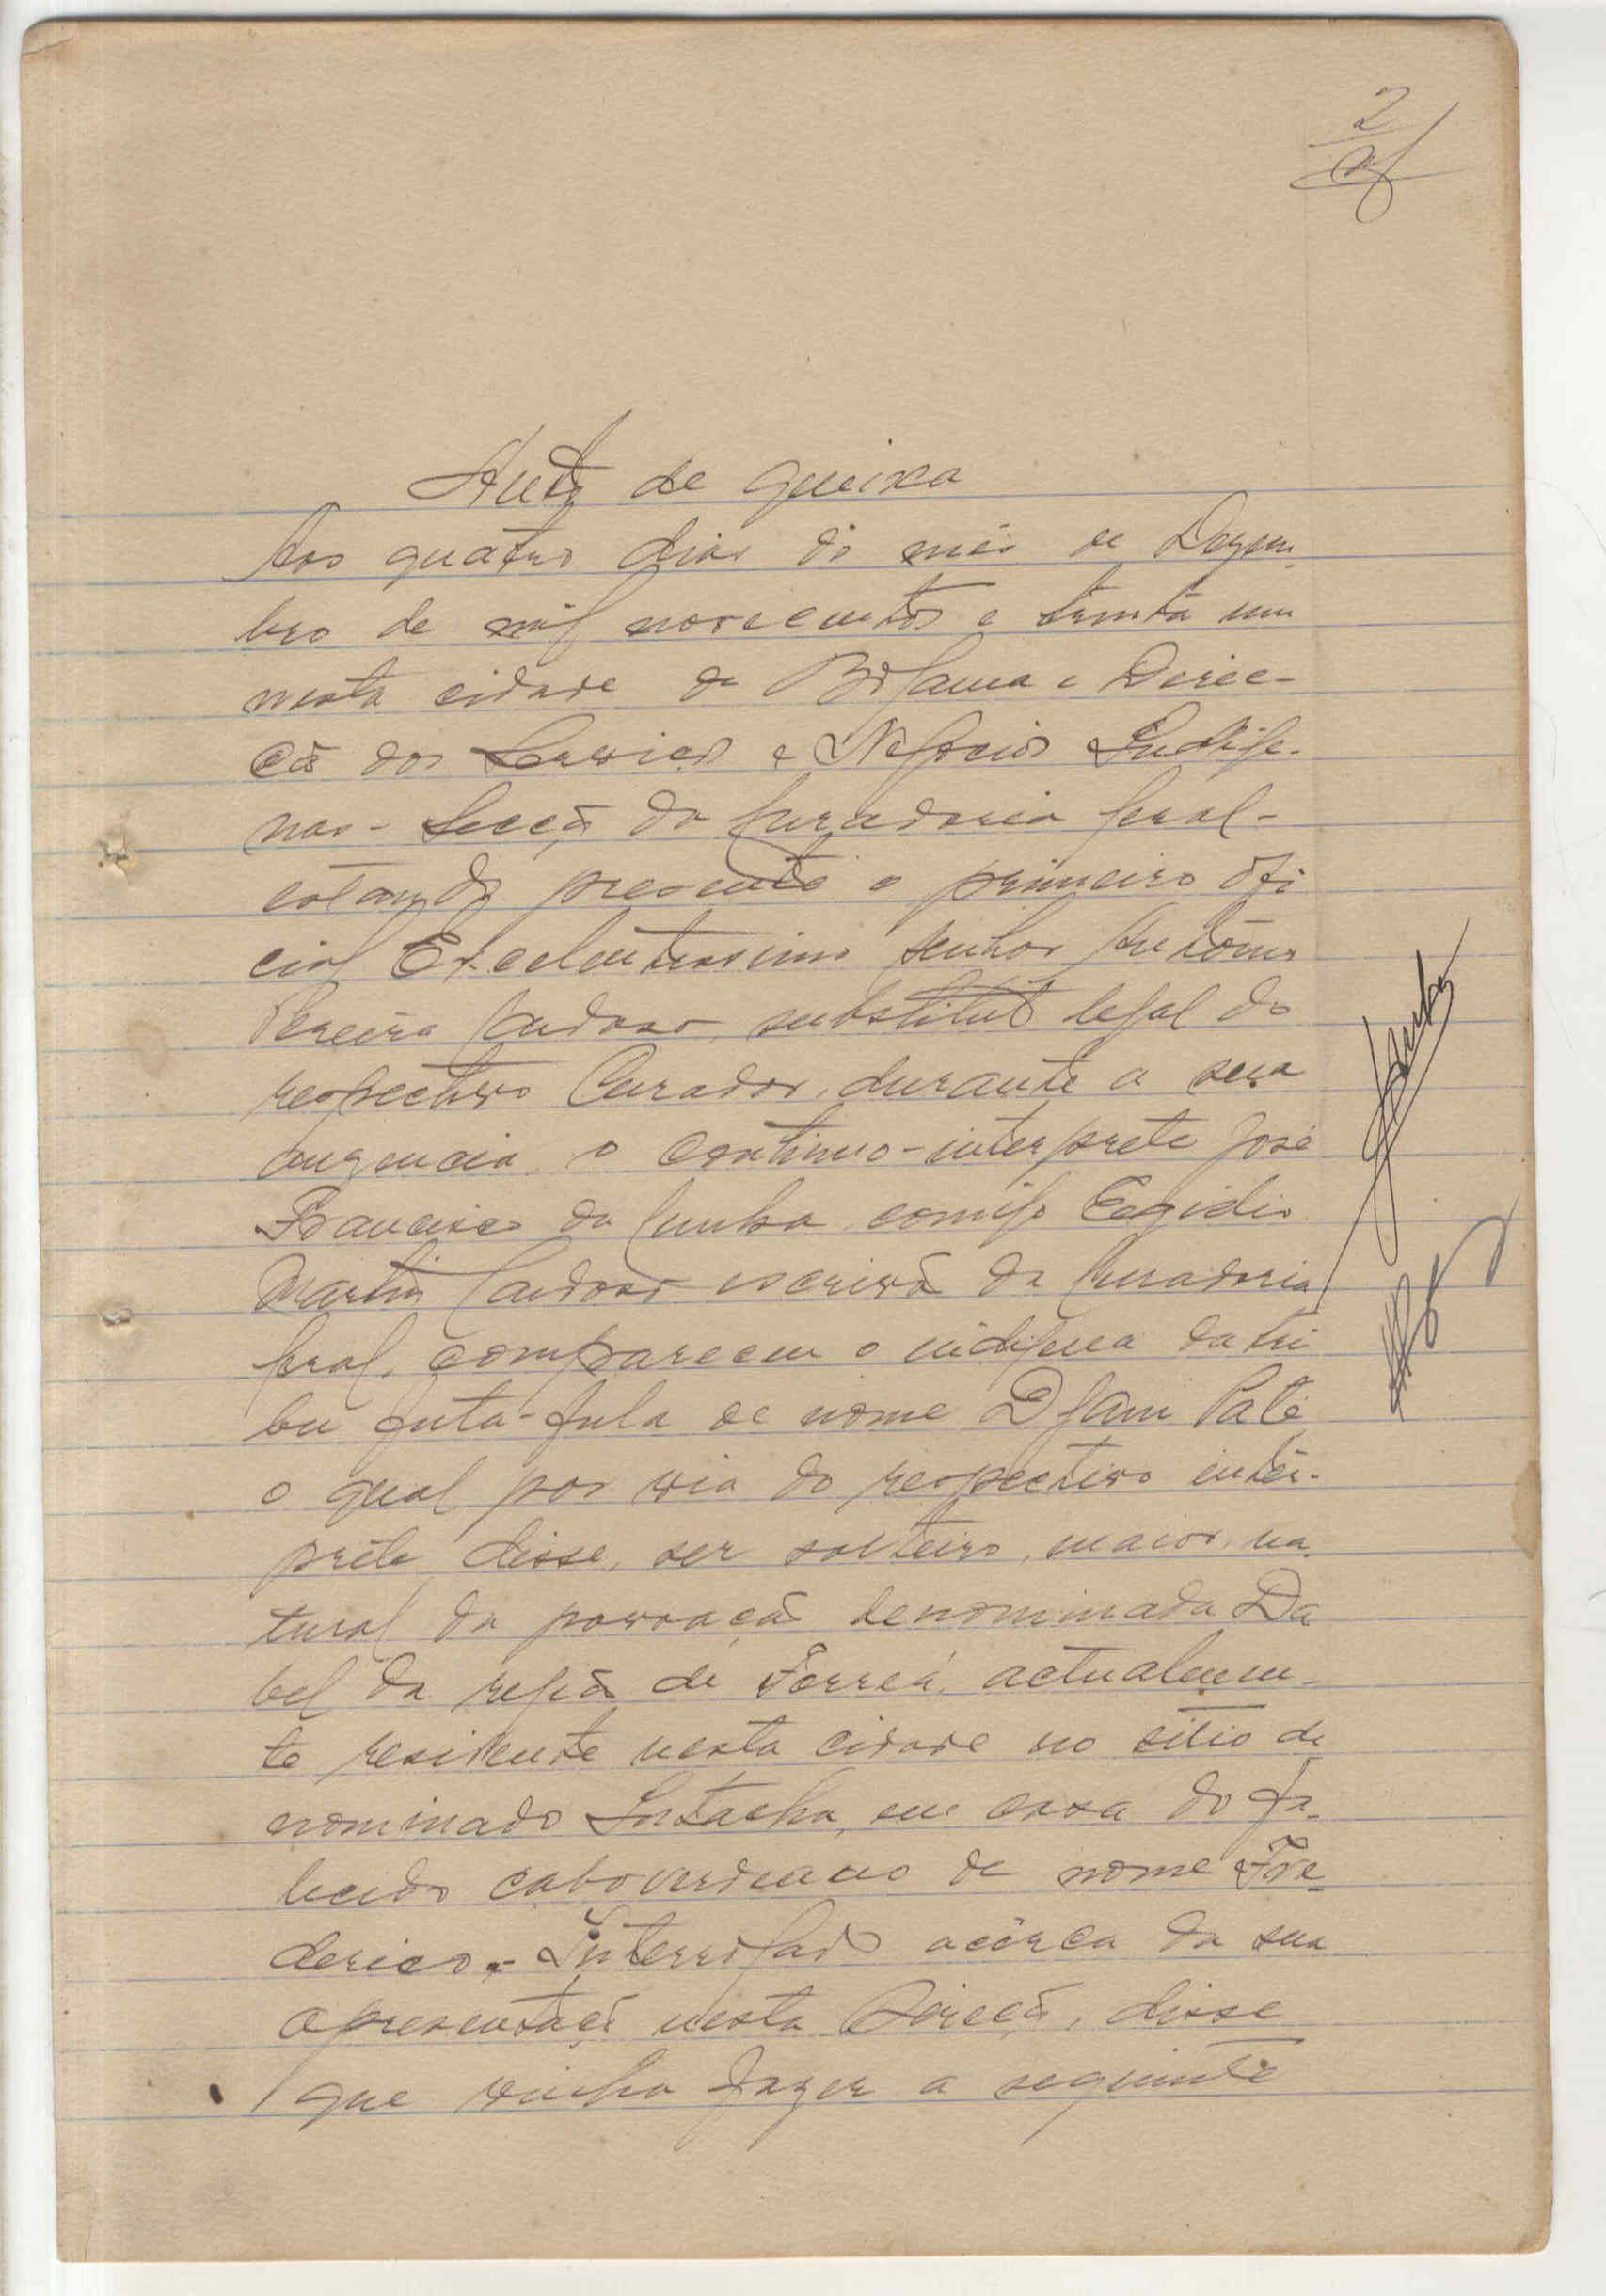 2
Auto de queixa
Aos quatro dias do mês de Dezem-
bro de mil novecentos e trinta um
nesta cidade de Bolama e Direc-
ção dos Serviços e Negocios Indige-
nas - Secção da Curadoria Geral -
estando presente o primeiro ofi
cial Excelentissimo senhor António
Pereira Cardoso, substituto legal do
respectivo Curador, durante a sua
auzencia, o continuo-interprete José
Francisco da Cunha, comigo Egidio
Martins Cardoso escrivão da Curadoria
Geral, compareceu o indigena da tri
bu futa-fula de nome Djam Paté
o qual por via do respectivo intér-
prete, disse, ser solteiro, maior, na
tural da povoação denominada Da
bel da região de Forreá, actualmen-
te residente nesta cidade no sitio de
nominado Intacha, em casa do fa-
lecido caboverdeano de nome Fre-
derico. - Interrogado acêrca da sua
apresentação nesta Direcção, disse
que vinha fazer a seguinte